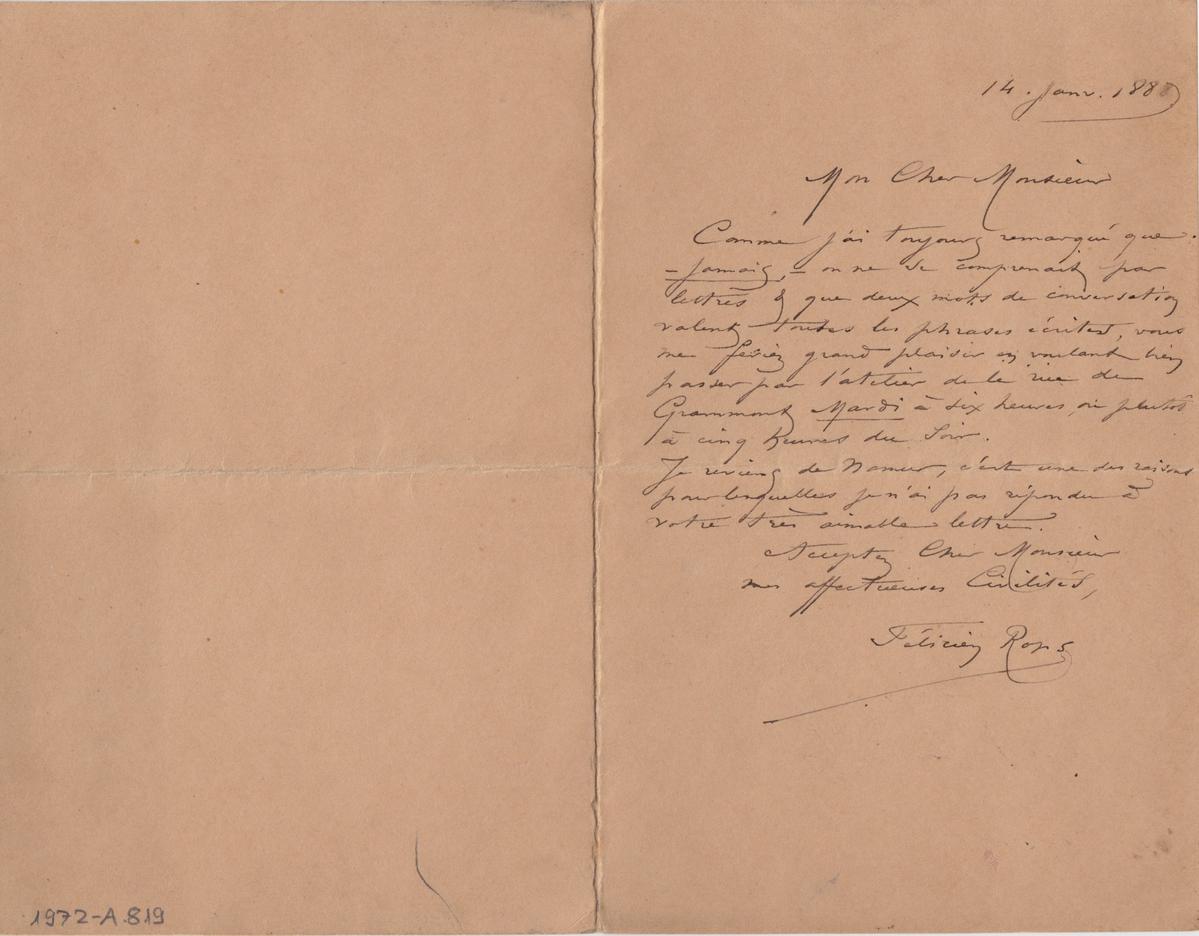 14. Janv. 188
Mon Cher Monsieur
Comme j'ai toujours remarqué que
– Jamais, – on ne se comprenait par
lettres & que deux mots de conversation
valent toutes les phrases écrites, vous
me feriez grand plaisir en voulant bien
passer par l'atelier de la rue de
Grammont Mardi à six heures, ou plutôt
à cinq heures du Soir.
Je reviens de Namur, c'est une des raisons
pour lesquelles je n'ai pas répondu à
votre très aimable lettre.
Acceptez Cher Monsieur
mes affectueuses Civilités,
Félicien Rops
1972-A.819